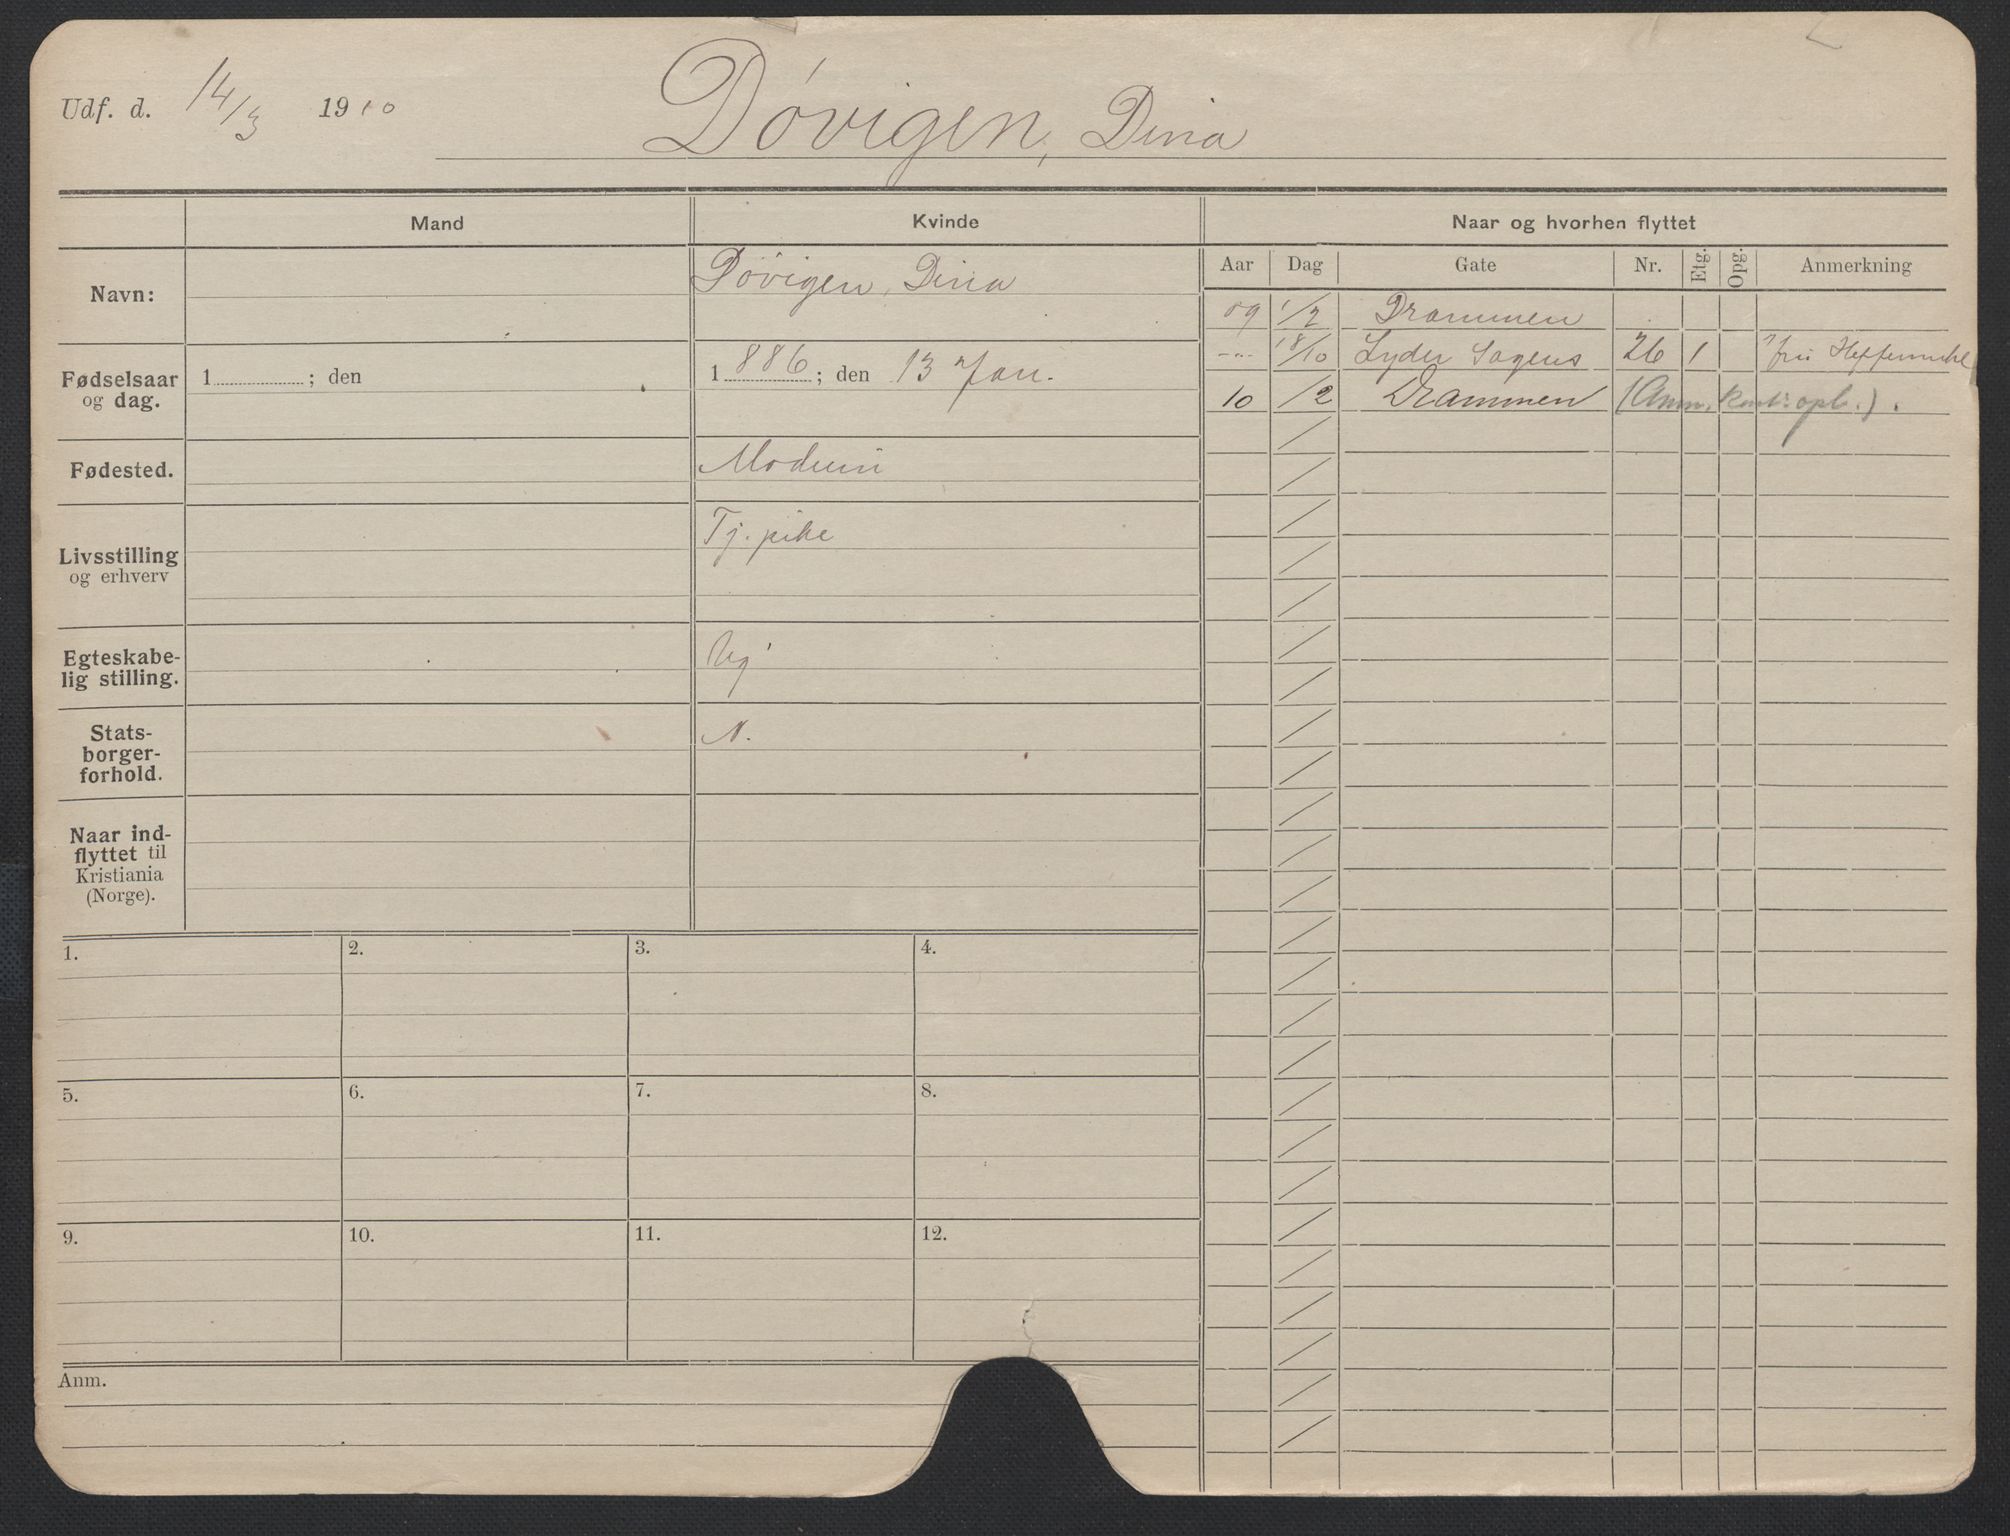 Udf. d. 14/3 1910 Døvigen, Dina
Mand
Kvinde
Naar og hvorhen flyttet
Aar Dag Gate Nr. Etg. Opg. Anmerkning
Navn:
Døvigen, Dina
Fødselsaar
og dag.
1 ; den
1886; den 13 Jan.
Fødested.
Modum
Livsstilling
og erhverv
Tj. pike
Egteskabe-
lig stilling.
Ug
Stats-
borger-
forhold.
N.
Naar ind-
flyttet til
Kristiania
(Norge).
09 1/2 Drammen
-"- 18/10 Lyder Sagens 26 1 fru
10 /2 Drammen (Anm. kont. opb.).
1.
2.
3.
4.
5.
6.
7.
8.
9.
10.
11.
12.
Anm.